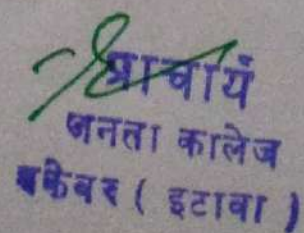 प्राचार्य
जनता कालेज
बकेबर ( इटावा )